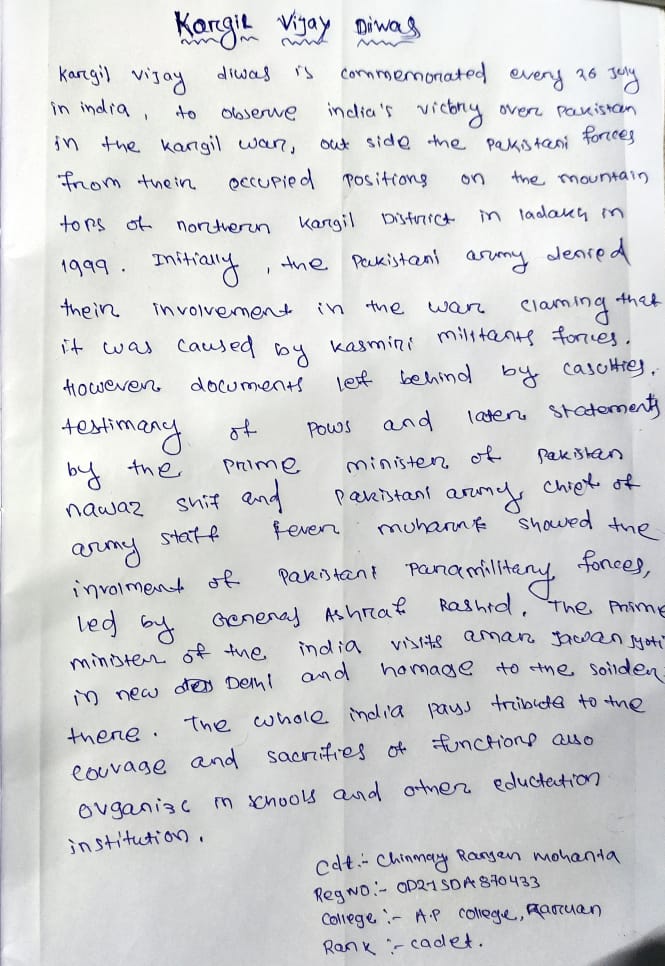 Kargil Vijay Diwas
Kargil vijay diwas is commemorated every 26 July
in india, to observe india's victory over Pakistan
in the Kargil war, out side the Pakistani forces
from their occupied positions on the mountain
tops of northern Kargil District in ladakh in
1999. Initially, the Pakistani army denied
their involvement in the war claming that
it was caused by Kasmiri militants forces.
However documents left behind by casulties,
testimany of POWS and later statements
by the prime minister of Pakistan
nawaz shif and Pakistani army chief of
army staff showed the
involment of Pakistani Paramilitary forces,
led by General Ashraf Rashid. The Prime
minister of the india visits amar Jawan Jyoti
in new Delhi and homage to the soilder
there. The whole india pays tribute to the
courage and sacrifies of functions also
organize in schools and other eductation
institution.
Cdt.:- Chinmay Ranjan Mohanta
Reg NO:- OD21SDA870433
College :- A.P College,
Rank :- cadet.